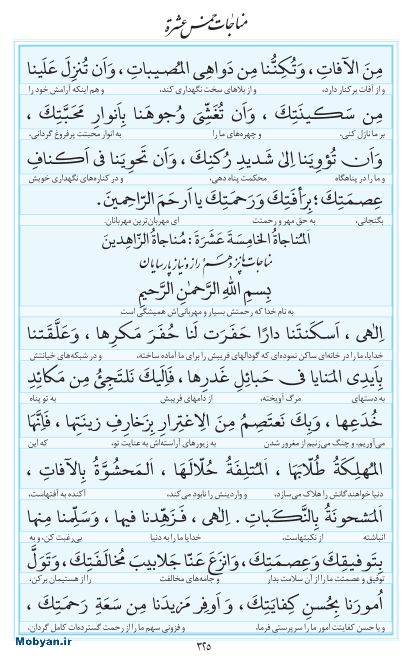 مناجات خمس عشرة
مِنَ الآفاتِ ، وَتُكِنُّنا مِن دَواهِی المُصیباتِ ، وَاَن تُنزِلَ عَلَینا
و از آفات برکنار دارد، و از بلاهای سخت نگهداری کند، و هم اینکه آرامش خود را
مِن سَکینَتِكَ ، وَاَن تُغَشِّیَ وُجوهَنا بِاَنوارِ مَحَبَّتِكَ ،
بر ما نازل کنی، و چهره‌های ما را به انوار محبتت پرفروغ گردانی.
وَاَن تُؤوِیَنا اِلیٰ شَدیدِ رُکنِكَ ، وَاَن تَحوِیَنا فی اَکنافِ
و ما را در پناهگاه محکمت پناه دهی، و در کناره‌های نگهداری خویش
عِصمَتِكَ ؛ بِرَأفَتِكَ وَرَحمَتِكَ یا اَرحَمَ الرّاحِمینَ.
بگنجانی، به حق مهر و رحمتت ای مهربان‌ترین مهربانان.
اَلمُناجاةُ الخامِسَةَ عَشَرَةَ : مُناجاةُ الزّاهِدینَ
مناجات پانزدهم : راز و نیاز پارسایان
بِسمِ اللهِ الرَّحمٰنِ الرَّحیمِ
به نام خدا که رحمتش بسیار و مهربانی‌اش همیشگی است
اِلٰهی ، اَسکَنتَنا دارًا حَفَرَت لَنا حُفَرَ مَکرِها ، وَعَلَّقَتنا
خدایا، ما را در خانه‌ای ساکن نموده‌ای که گودالهای فریبش را برای ما آماده ساخته، و در شبکه‌های خیانتش
بِاَیدِی المَنایا فی حَبائِلِ غَدرِها ، فَاِلَیكَ نَلتَجِئُ مِن مَکائِدِ
به دستهای مرگ آویخته، از دامهای فریبش به تو پناه
خُدَعِها ، وَبِكَ نَعتَصِمُ مِنَ الاِغتِرارِ بِزَخارِفِ زینَتِها ، فَاِنَّهَا
می‌آوریم، و چنگ می‌زنیم از مغرور شدن به زیورهای آراسته‌اش به عنایت تو، که این
المُهلِکَةُ طُلّابَها ، اَلمُتلِفَةُ حُلّالَها ، اَلمَحشُوَّةُ بِالآفاتِ ،
دنیا خواهندگانش را هلاک می‌سازد، و واردینش را نابود می‌کند، آکنده به آفتهاست،
اَلمَشحونَةُ بِالنَّکَباتِ . اِلٰهی ، فَزَهِّدنا فیها ، وَسَلِّمنا مِنها
انباشته از نکبتهاست، خدایا ما را به دنیا بی‌رغبت کن، و به
بِتَوفیقِكَ وَعِصمَتِكَ ، وَانزَع عَنّا جَلابیبَ مُخالَفَتِكَ ، وَتَوَلَّ
توفیق و عصمتت ما را از آن سلامت بدار و جامه‌های مخالفت را از هستیمان برکن،
اُمورَنا بِحُسنِ کِفایَتِكَ ، وَ اَوفِر مَزیدَنا مِن سَعَةِ رَحمَتِكَ ،
و با حسن کفایتت امور ما را سرپرستی فرما، و فزونی سهم ما را از رحمت گسترده‌ات کامل گردان،
۳۲۵
Mobyan.ir